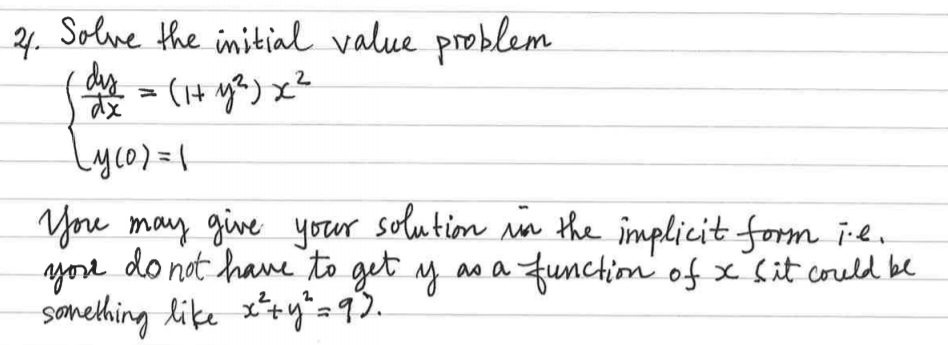 2. Solve the initial value problem
{ dy/dx = (1+ y²) x²
y(0) = 1
You may give your solution in the implicit form i.e.
you do not have to get y as a function of x {it could be
something like x²+y²=9}.